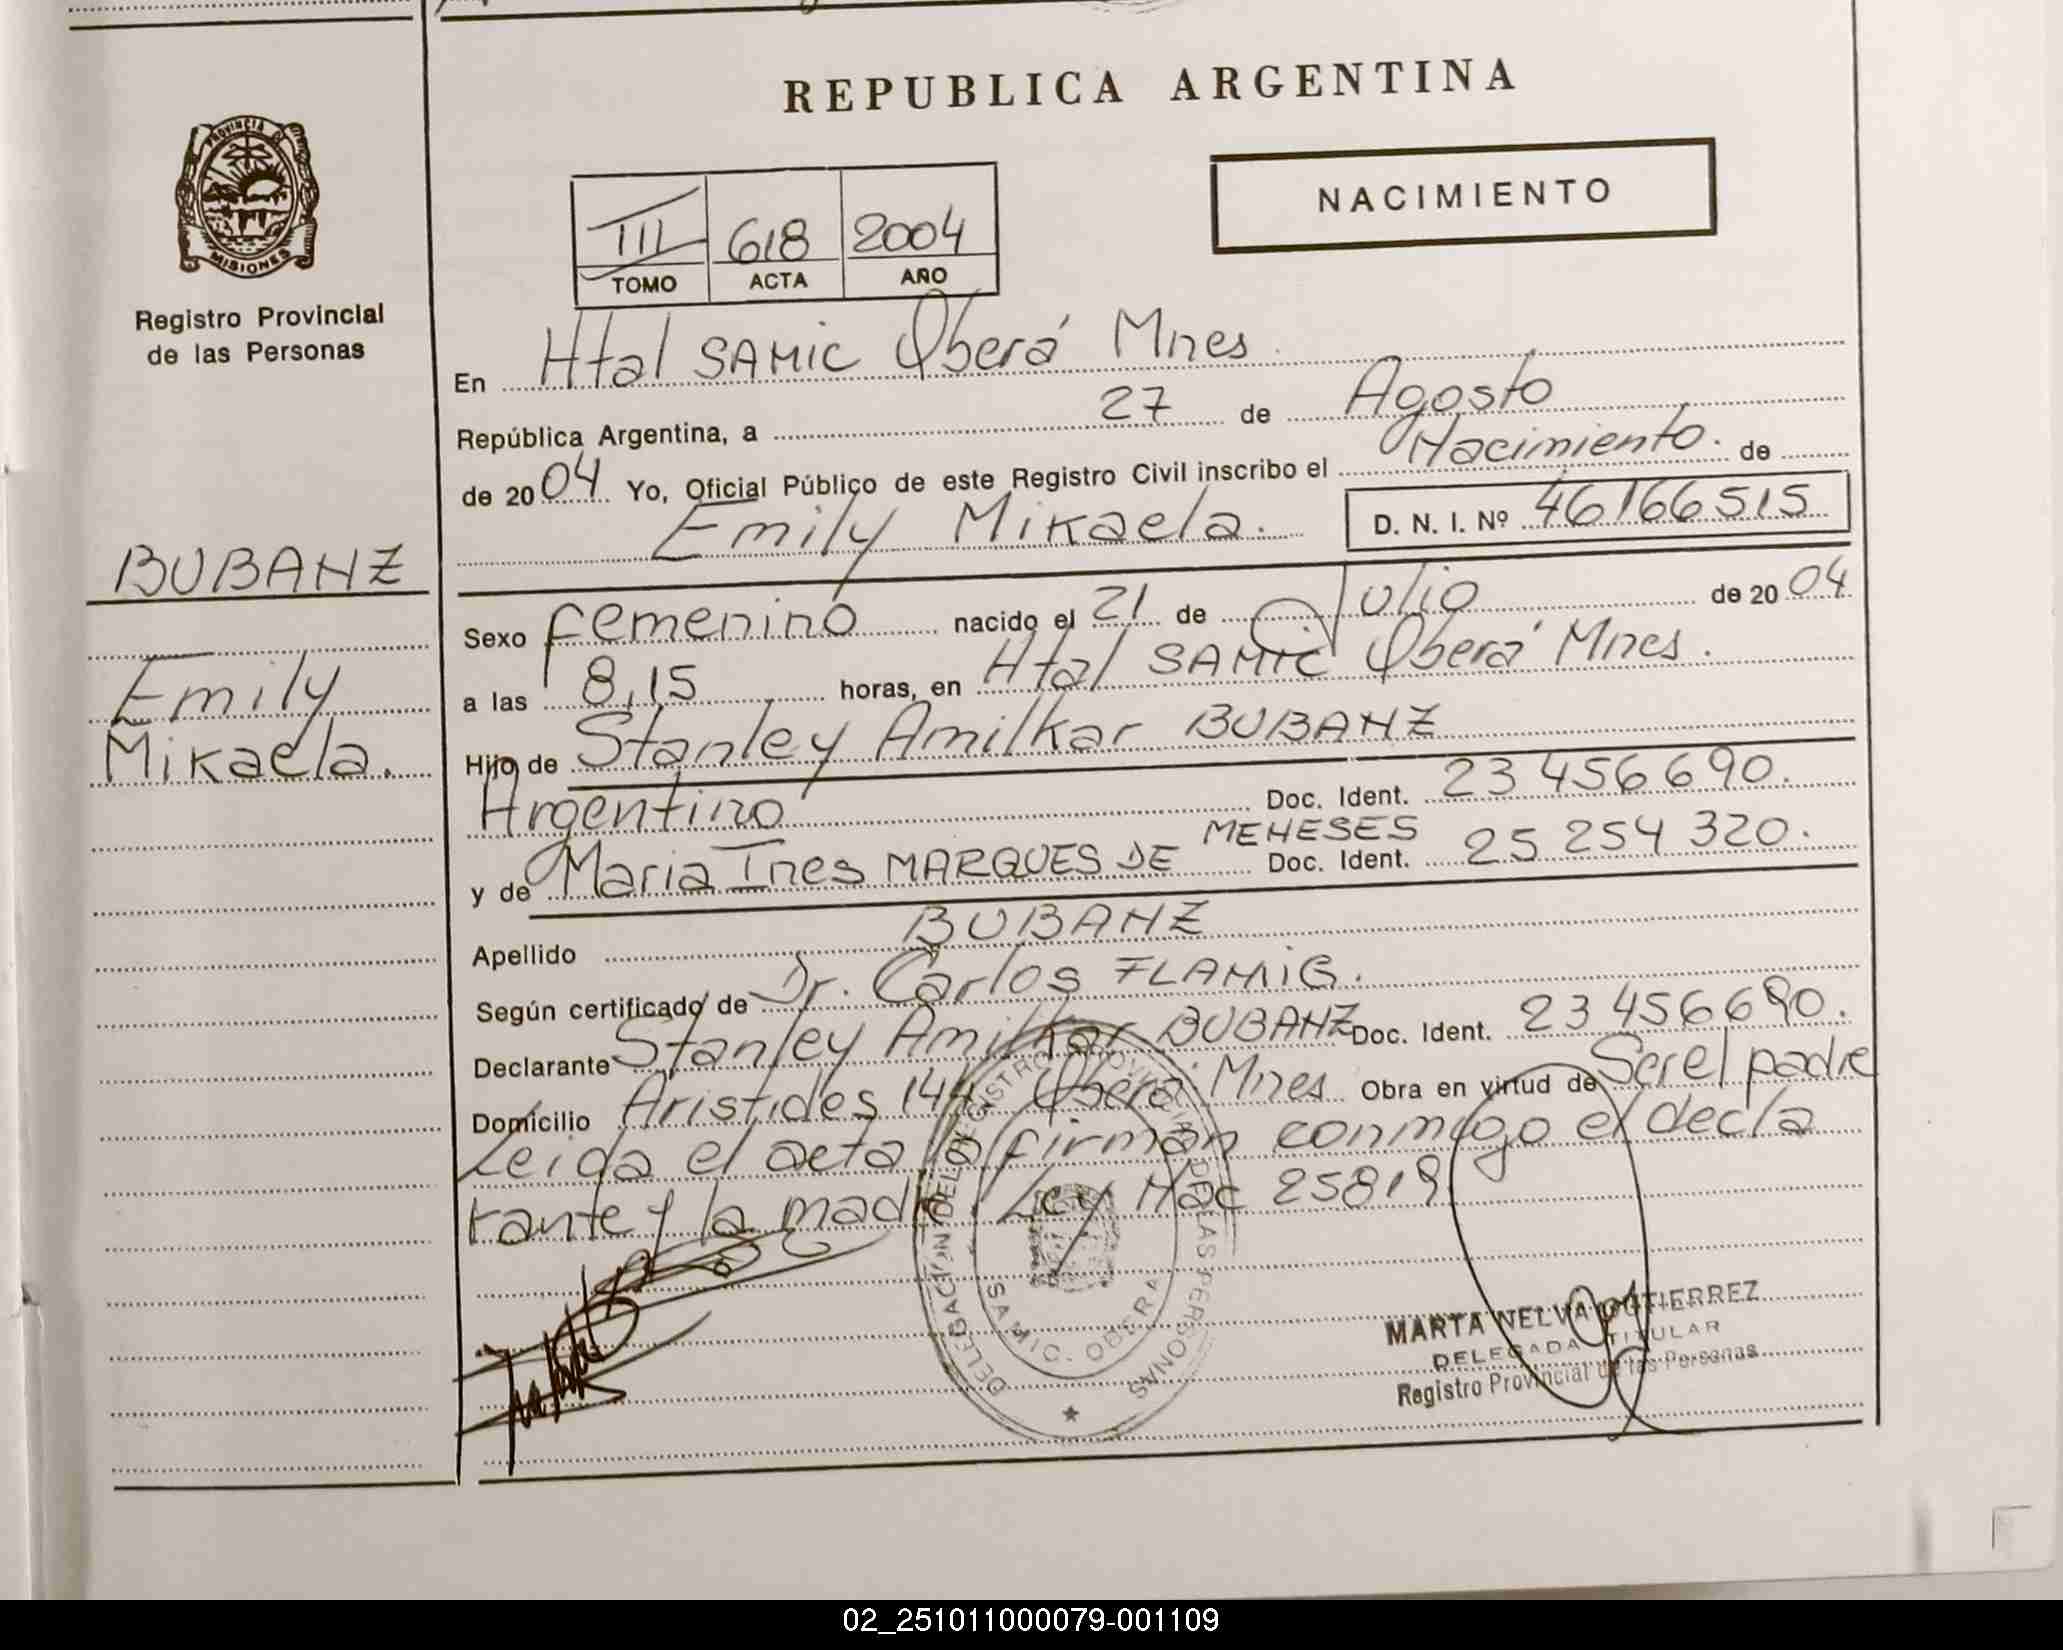 REPUBLICA ARGENTINA
NACIMIENTO
PROVINCIA DE
MISIONES
Registro Provincial
de las Personas
III 618 2004
TOMO ACTA AÑO
En Htal SAMIC Oberá Mnes.
República Argentina, a 27 de Agosto
de 2004 Yo, Oficial Público de este Registro Civil inscribo el Nacimiento. de
Emily Mikaela. D. N. I. Nº 46166515
BUBANZ
Emily
Mikaela.
Sexo femenino nacido el 21 de Julio de 2004
a las 8,15 horas, en Htal SAMIC Oberá Mnes.
Hijo de Stanley Amilkar BUBANZ
Argentino Doc. Ident. 23 456 690.
y de Maria Ines MARQUES DE MENESES Doc. Ident. 25 254 320.
Apellido BUBANZ
Según certificado de Dr. Carlos FLAMIG.
Declarante Stanley Amilkar BUBANZ Doc. Ident. 23 456 690.
Domicilio Aristides 144. Oberá Mnes Obra en virtud de Ser el padre
Leida el acta la firman conmigo el decla
rante y la madre. Ley Nac 25819
DELEGACIÓN DEL REGISTRO PROVINCIAL DE LAS PERSONAS
SAMIC. OBERA
MARTA NELVA GUTIERREZ
DELEGADA TITULAR
Registro Provincial de las Personas
02_251011000079-001109